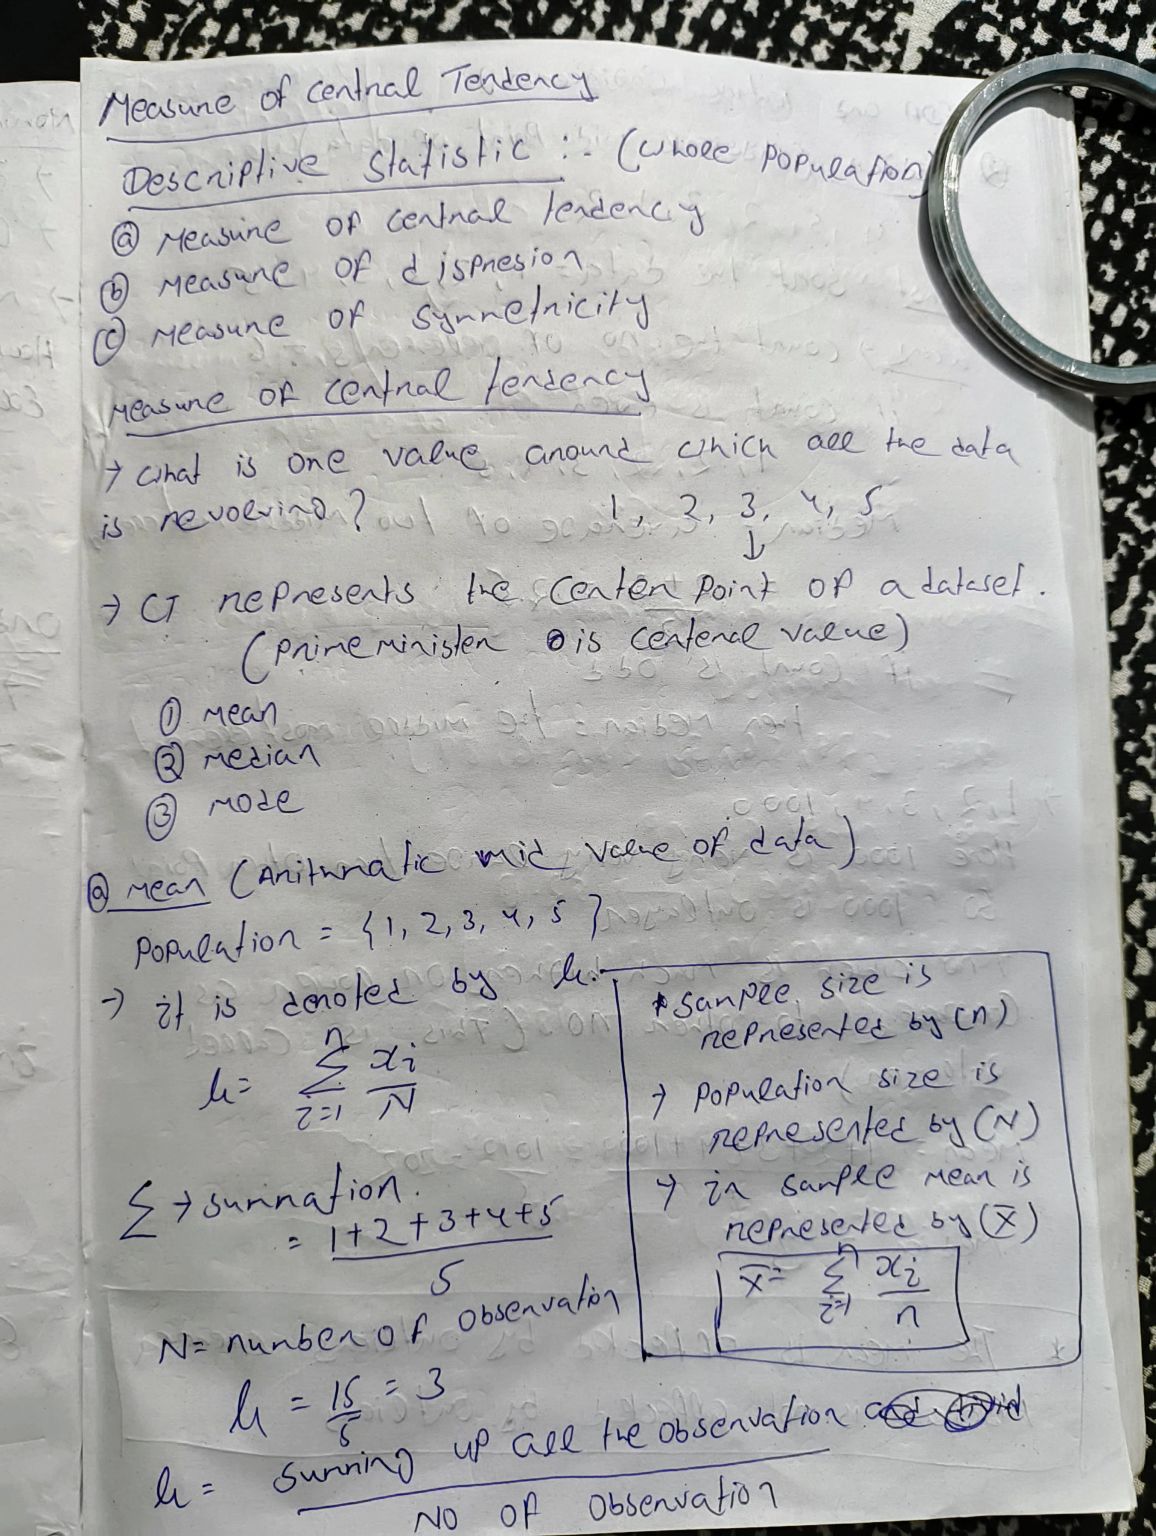 Measure of central Tendency
Descriptive Statistic :- (whole population)
ⓐ Measure of central tendency
ⓑ Measure of dispresion
ⓒ Measure of symmetricity
Measure of central tendency
→ what is one value around which all the data
is revolving? 1, 2, 3, 4, 5
↓
→ CT represents the center point of a dataset.
(prime minister is centeral value)
① mean
② median
③ mode
ⓐ mean (Arithmatic mid value of data)
Population = {1, 2, 3, 4, 5}
→ it is denoted by μ.
μ = n Σ i=1 xi/N
Σ → summation.
= 1+2+3+4+5 / 5
N = number of observation
μ = 15/5 = 3
μ = Summing up all the observation
NO OF observation
* Sample size is
represented by (n)
→ population size is
represented by (N)
→ in sample mean is
represented by (x̄)
x̄ = n Σ i=1 xi/n